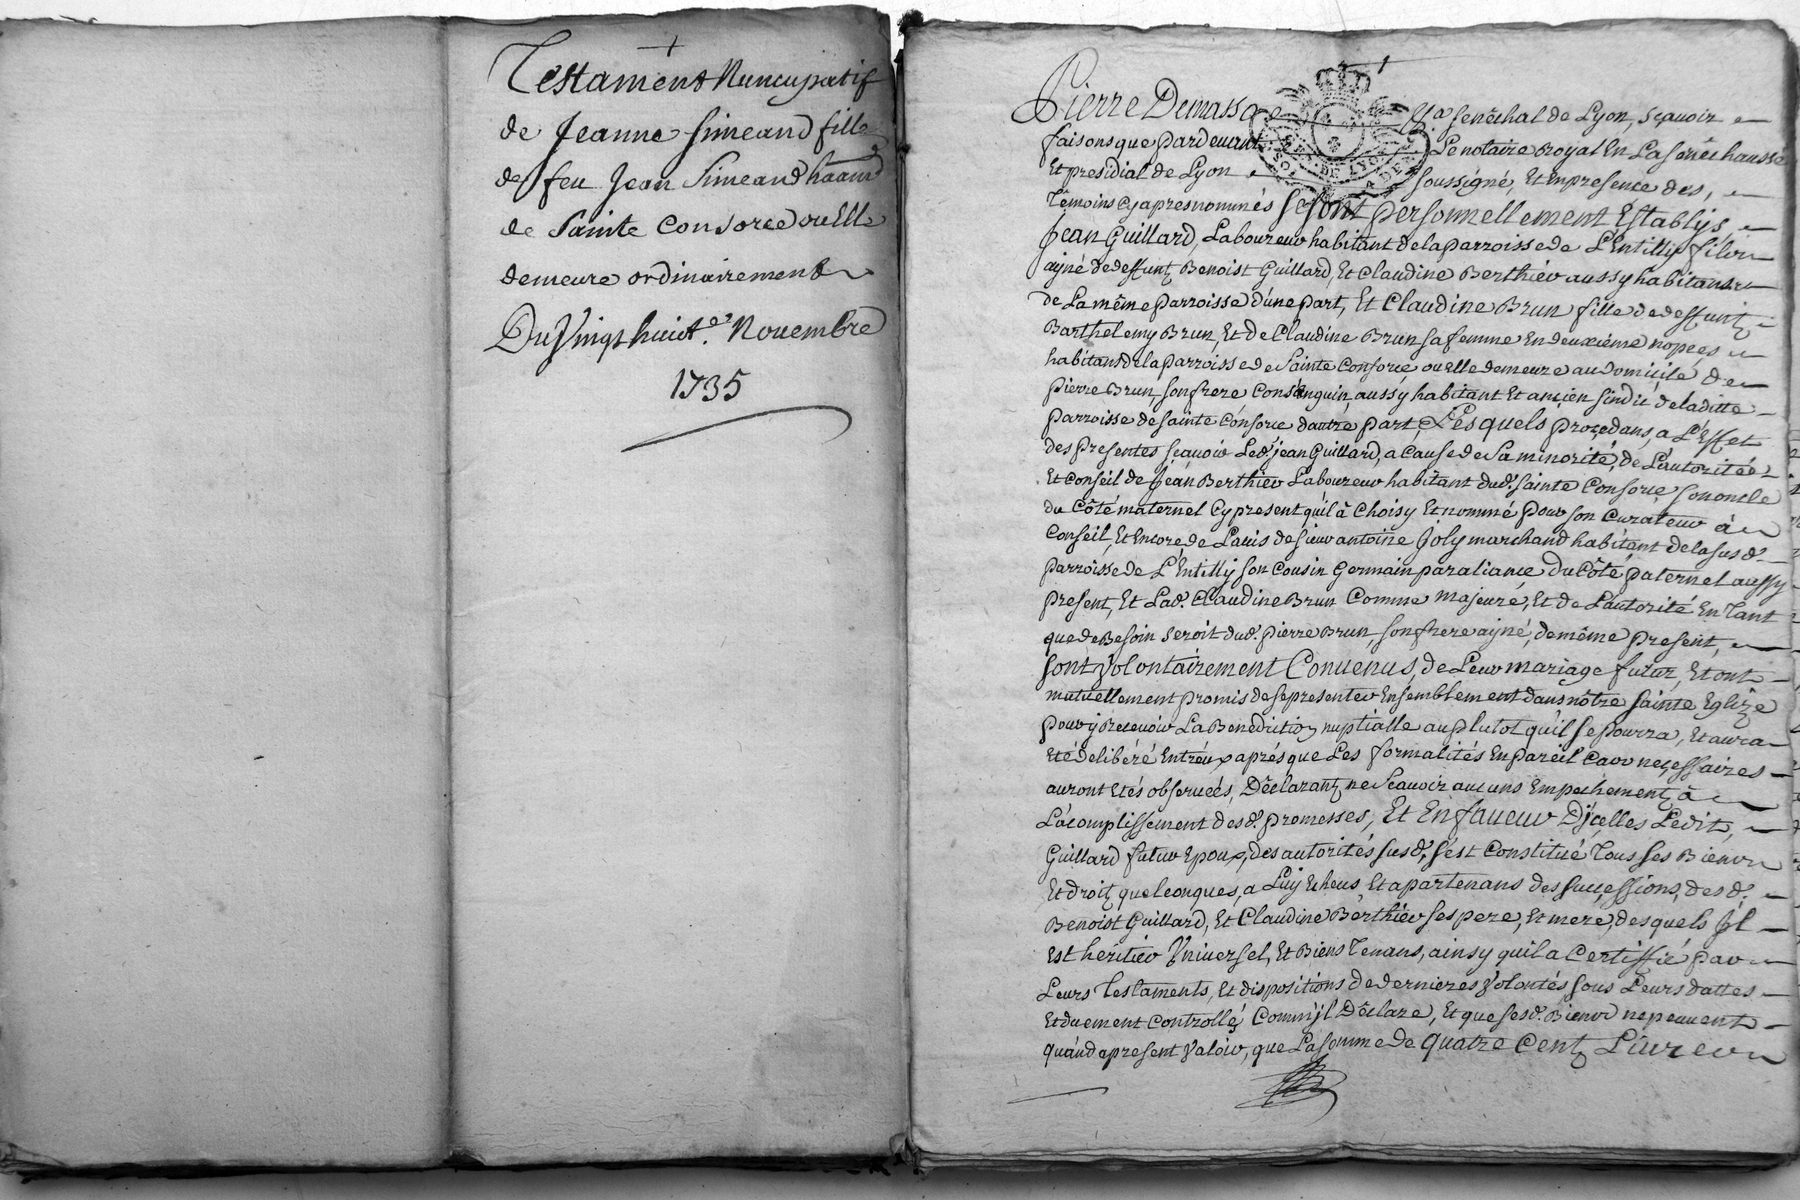 Testament Nuncupatif
de Jeanne Simeand fille
de feu Jean Simeand
de Sainte Consorce ou Elle
demeure ordinairement
Du Vingt huict.e Novembre
1735
Pierre Demasso Senéchal de Lyon, Sçavoir
faisons que Pardevant Le notaire Royal En La Senêchaussée
Et présidial de Lyon soussigné, Et en presence des,
Temoins Cy apres nommés se sont personnellement Establys,
Jean Guillard, Laboureur habitant de la parroisse de L'Entilly fils
ayné de deffunt Benoist Guillard, Et Claudine Berthier aussy habitans
de La même parroisse d'une part, Et Claudine Brun fille de deffunt
Barthelemy Brun, Et de Claudine Brun sa femme En deuxième nopces
habitans de la parroisse de Sainte Consorce ou elle demeure au Domicile de
Pierre Brun, son frere Consenguin, aussy habitant Et ancien sindic de laditte
Parroisse de sainte Consorce dautre part, Lesquels procedans, a L'Effet
des Presentes sçavoir Led. jean Guillard, a Cause de Sa minorité, de L'autorité
Et Conseil de Jean Berthier Laboureur habitant dud. Sainte Consorce son oncle
du Côté maternel Cy present qu'il à Choisy Et nommé pour son Curateur à
Conseil, Et Encore de L'avis de sieur antoine Joly marchand habitant de la sus d.
parroisse de L'Entilly son Cousin Germain par aliance du Côté paternel aussy
present, Et Lad. Claudine Brun Comme majeure, Et de L'autorité En Tant
que de Besoin seroit dud. pierre Brun, son frere ayné, de même present,
sont volontairement Convenus, de Leur mariage futur, Et ont
mutuellement promis de se presenter Ensemblement dans nôtre Sainte Eglize
pour y Recevoir La Benediction nuptialle au plutot qu'il se pourra, Et aura
Eté delibéré Entréux aprés que Les formalités En pareil Cas necessaires
auront Etés observées, Déclarant ne Scavoir aucuns Empechement à
L'acomplissement desd. promesses, Et En faveur D'jcelles Ledit,
Guillard futur Epoux, des autorités susd. s'est Constitué Tous ses Biens
Et droit quelconques, a Luy Echeus Et apartenans des successions, desd.
Benoist Guillard, Et Claudine Berthier ses pere, Et mere, desquels jl
Est héritier Vniversel, Et Biens Tenans, ainsy qu'il a Certiffié par
Leurs Testaments, Et dispositions de dernieres Volontés sous Leurs dattes
Et duement Controllés Comm'jl Déclare, Et que sesd. Biens ne peuvent
quànd a present Valoir, que La somme de quatre Cent Livres